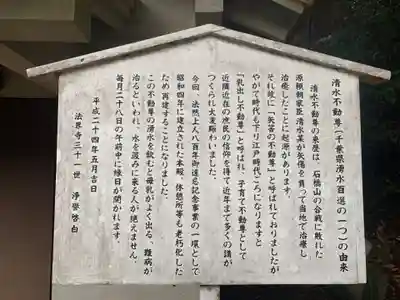 清水不動尊(千葉県湧水百選の一つ)の由来
清水不動尊の来歴は、石橋山の合戦に敗れた
源頼朝家臣清水某が矢傷を負って当地で治療し
治癒したことに起源があります。
それ故に「矢苦の不動尊」と呼ばれておりましたが
やがて時代も下り江戸時代ごろになりますと
「乳出し不動尊」と呼ばれ、子育て不動尊として
近隣近在の庶民の信仰を得て近年まで多くの講が
つくられ大変賑わいました。
今回、法然上人八百年御遠忌記念事業の一環として
昭和四年に建立された本殿、休憩所等も老朽化した
ため再建することになりました。
この不動尊の湧水を飲むと母乳がよく出る、難病が
治るといわれ、水を汲みに来る人が絶えません。
毎月二十八日の午前中に縁日が開かれます。
平成二十四年五月吉日
法界寺三十一世 浄誉啓白